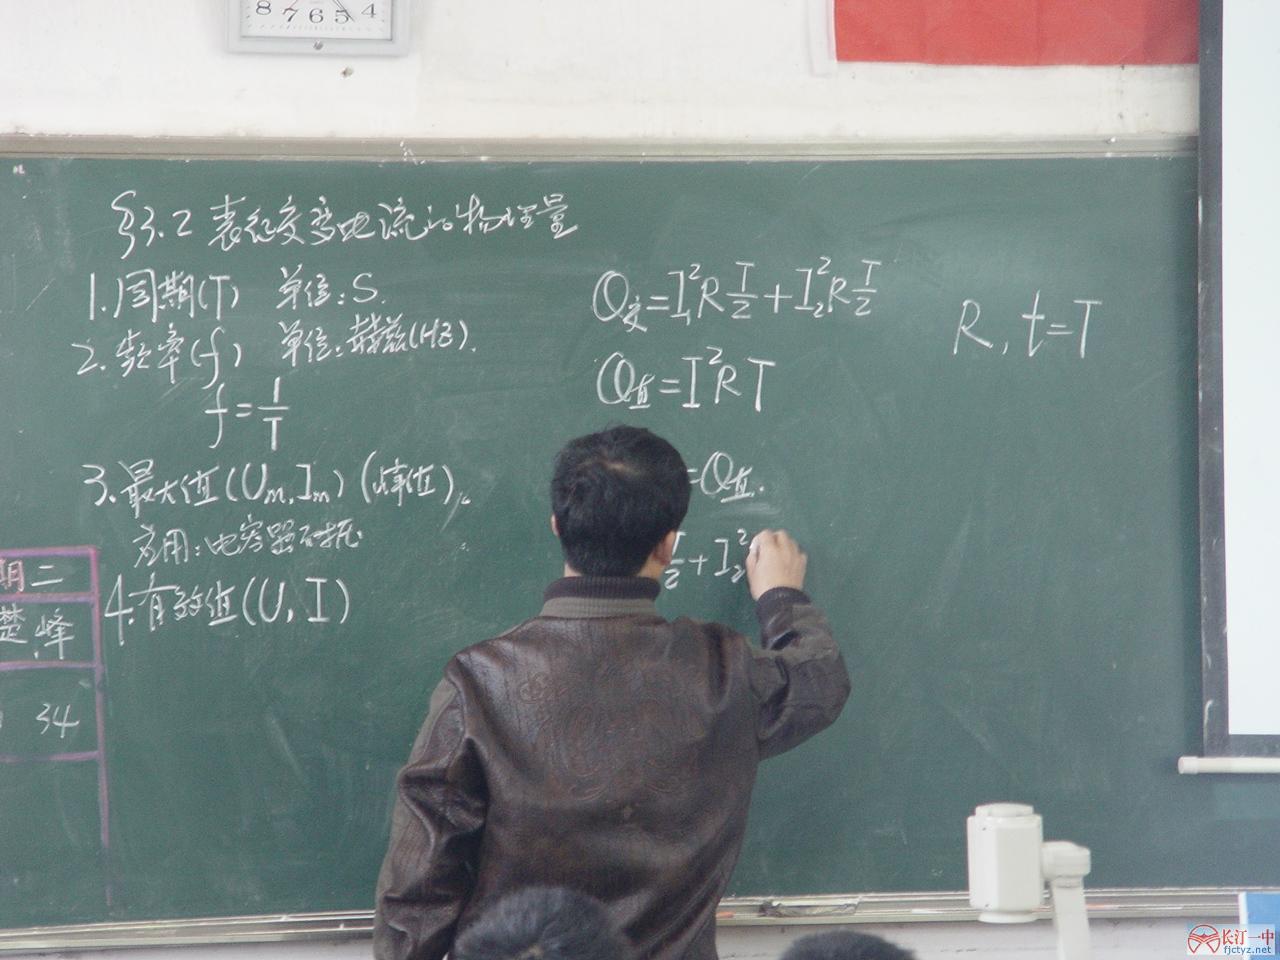 8 7 6 5 4
§3.2 表征交变电流的物理量
1.周期(T) 单位:S.
2.频率(f) 单位:赫兹(HZ).
f=1/T
3.最大值(Um,Im)(峰值).
应用:电容器耐压
4.有效值(U,I)
Q交=I₁²R T/2+I₂²R T/2
Q直=I²RT
=Q直.
T/2+I₂²
R,t=T
期二
楚峰
34
长汀一中
fjctyz.net